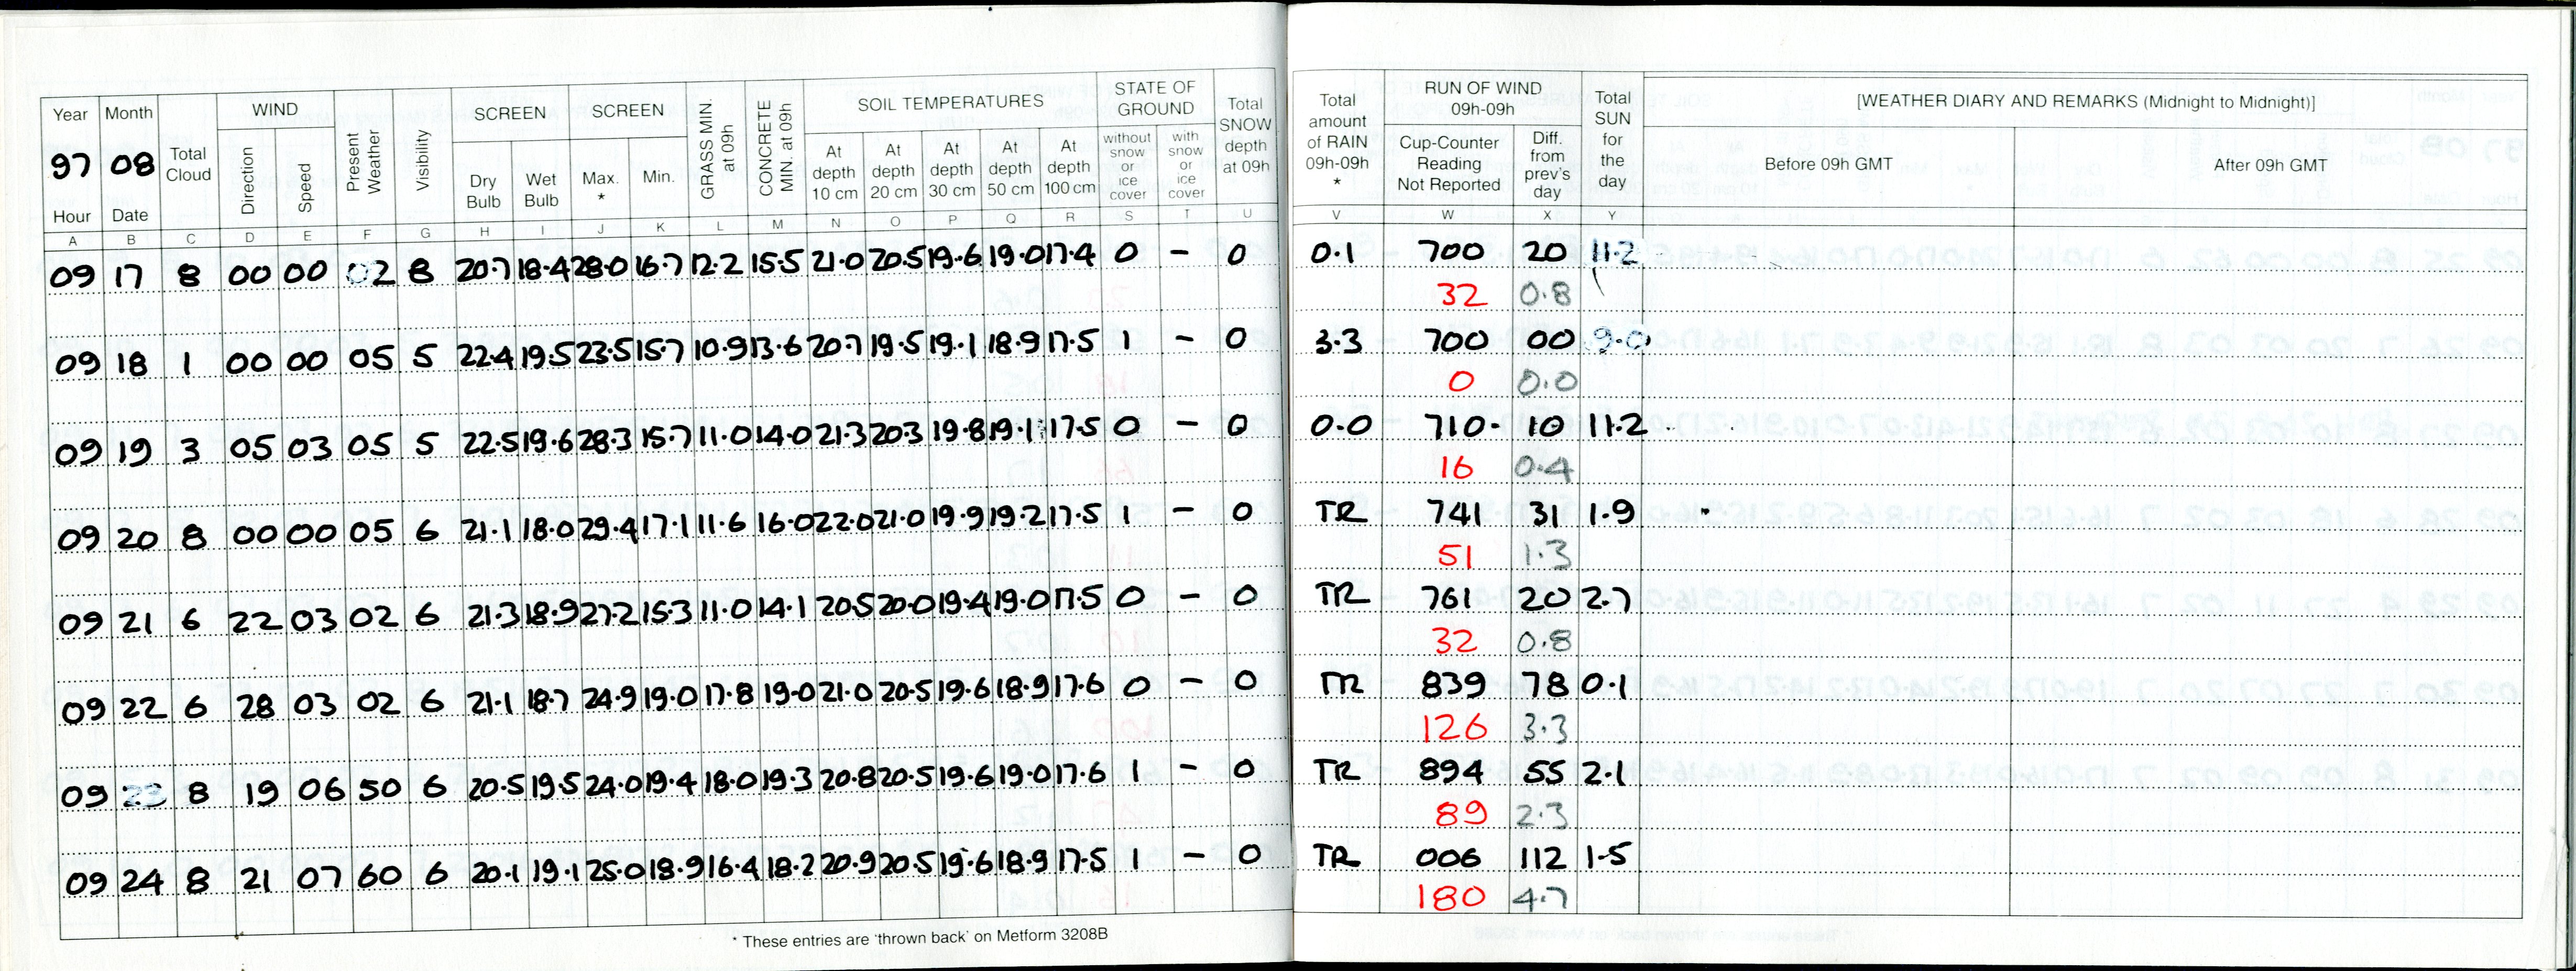 Year Month Total Cloud WIND Present Weather Visibility SCREEN SCREEN GRASS MIN. at 09h CONCRETE MIN. at 09h SOIL TEMPERATURES STATE OF GROUND Total SNOW depth at 09h Total amount of RAIN 09h-09h * RUN OF WIND 09h-09h Total SUN for the day [WEATHER DIARY AND REMARKS (Midnight to Midnight)]
97 08 Direction Speed Dry Bulb Wet Bulb Max. * Min. At depth 10 cm At depth 20 cm At depth 30 cm At depth 50 cm At depth 100 cm without snow or ice cover with snow or ice cover Cup-Counter Reading Not Reported Diff. from prev's day Before 09h GMT After 09h GMT
Hour Date
A B C D E F G H I J K L M N O P Q R S T U V W X Y
09 17 8 00 00 02 8 20.7 18.4 28.0 16.7 12.2 15.5 21.0 20.5 19.6 19.0 17.4 0 - 0 0.1 700 20 11.2
32 0.8
09 18 1 00 00 05 5 22.4 19.5 23.5 15.7 10.9 13.6 20.7 19.5 19.1 18.9 17.5 1 - 0 3.3 700 00 9.0
0 0.0
09 19 3 05 03 05 5 22.5 19.6 28.3 15.7 11.0 14.0 21.3 20.3 19.8 19.1 17.5 0 - 0 0.0 710 10 11.2
16 0.4
09 20 8 00 00 05 6 21.1 18.0 29.4 17.1 11.6 16.0 22.0 21.0 19.9 19.2 17.5 1 - 0 TR 741 31 1.9
51 1.3
09 21 6 22 03 02 6 21.3 18.9 27.2 15.3 11.0 14.1 20.5 20.0 19.4 19.0 17.5 0 - 0 TR 761 20 2.7
32 0.8
09 22 6 28 03 02 6 21.1 18.7 24.9 19.0 17.8 19.0 21.0 20.5 19.6 18.9 17.6 0 - 0 TR 839 78 0.1
126 3.3
09 23 8 19 06 50 6 20.5 19.5 24.0 19.4 18.0 19.3 20.8 20.5 19.6 19.0 17.6 1 - 0 TR 894 55 2.1
89 2.3
09 24 8 21 07 60 6 20.1 19.1 25.0 18.9 16.4 18.2 20.9 20.5 19.6 18.9 17.5 1 - 0 TR 006 112 1.5
180 4.7
* These entries are 'thrown back' on Metform 3208B